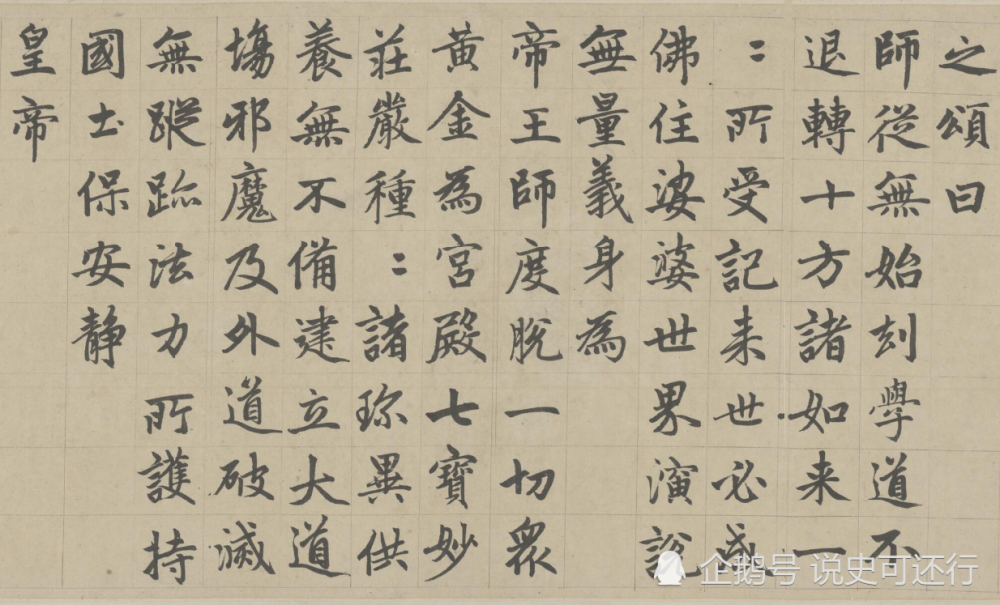 之頌曰
師從無始刧學道不
退轉十方諸如来一
〻所受記来世必成
佛住娑婆世界演說
無量義身為
帝王師度脫一切衆
黃金為宮殿七寶妙
莊嚴種〻諸珎異供
養無不備建立大道
場邪魔及外道破滅
無蹤跡法力所護持
國土保安靜
皇帝
企鹅号 说史可还行